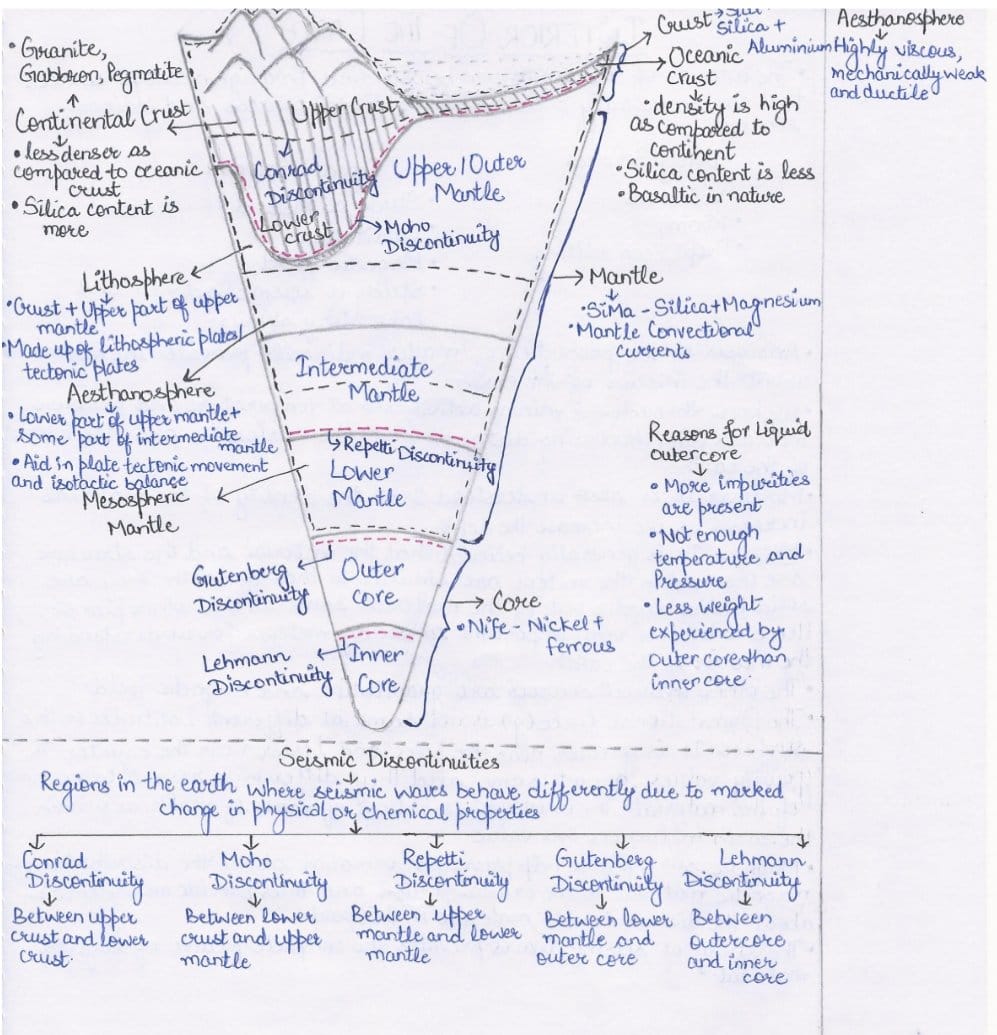 Crust → Sial -
Silica +
Aluminium
Aesthanosphere
Highly viscous,
mechanically weak
and ductile
• Granite,
Gabbron, Pegmatite
Continental Crust
• less denser as
compared to oceanic
crust
• Silica content is
more
Upper Crust
Conrad
Discontinuity
Lower
crust
Moho
Discontinuity
Upper / Outer
Mantle
Oceanic
Crust
• density is high
as compared to
continent
• Silica content is less
• Basaltic in nature
Lithosphere
• Crust + Upper part of upper
mantle
• Made up of lithospheric plates/
tectonic plates
Aesthanosphere
• Lower part of upper mantle +
some part of intermediate
mantle
• Aid in plate tectonic movement
and isotactic balance
Mesospheric
Mantle
Mantle
• SiMa - Silica + Magnesium
• Mantle Convectional
currents
Intermediate
Mantle
Repetti Discontinuity
Lower
Mantle
Gutenberg
Discontinuity
Outer
core
Core
• Nife - Nickel +
ferrous
Lehmann
Discontinuity
Inner
Core
Reasons for Liquid
outercore
• More impurities
are present
• Not enough
temperature and
Pressure
• Less weight
experienced by
Outer core than
inner core
Seismic Discontinuities
Regions in the earth where seismic waves behave differently due to marked
change in physical or chemical properties
Conrad
Discontinuity
Between upper
crust and lower
crust
Moho
Discontinuity
Between lower
crust and upper
mantle
Repetti
Discontinuity
Between upper
mantle and lower
mantle
Gutenberg
Discontinuity
Between lower
mantle and
outer core
Lehmann
Discontinuity
Between
outercore
and inner
core